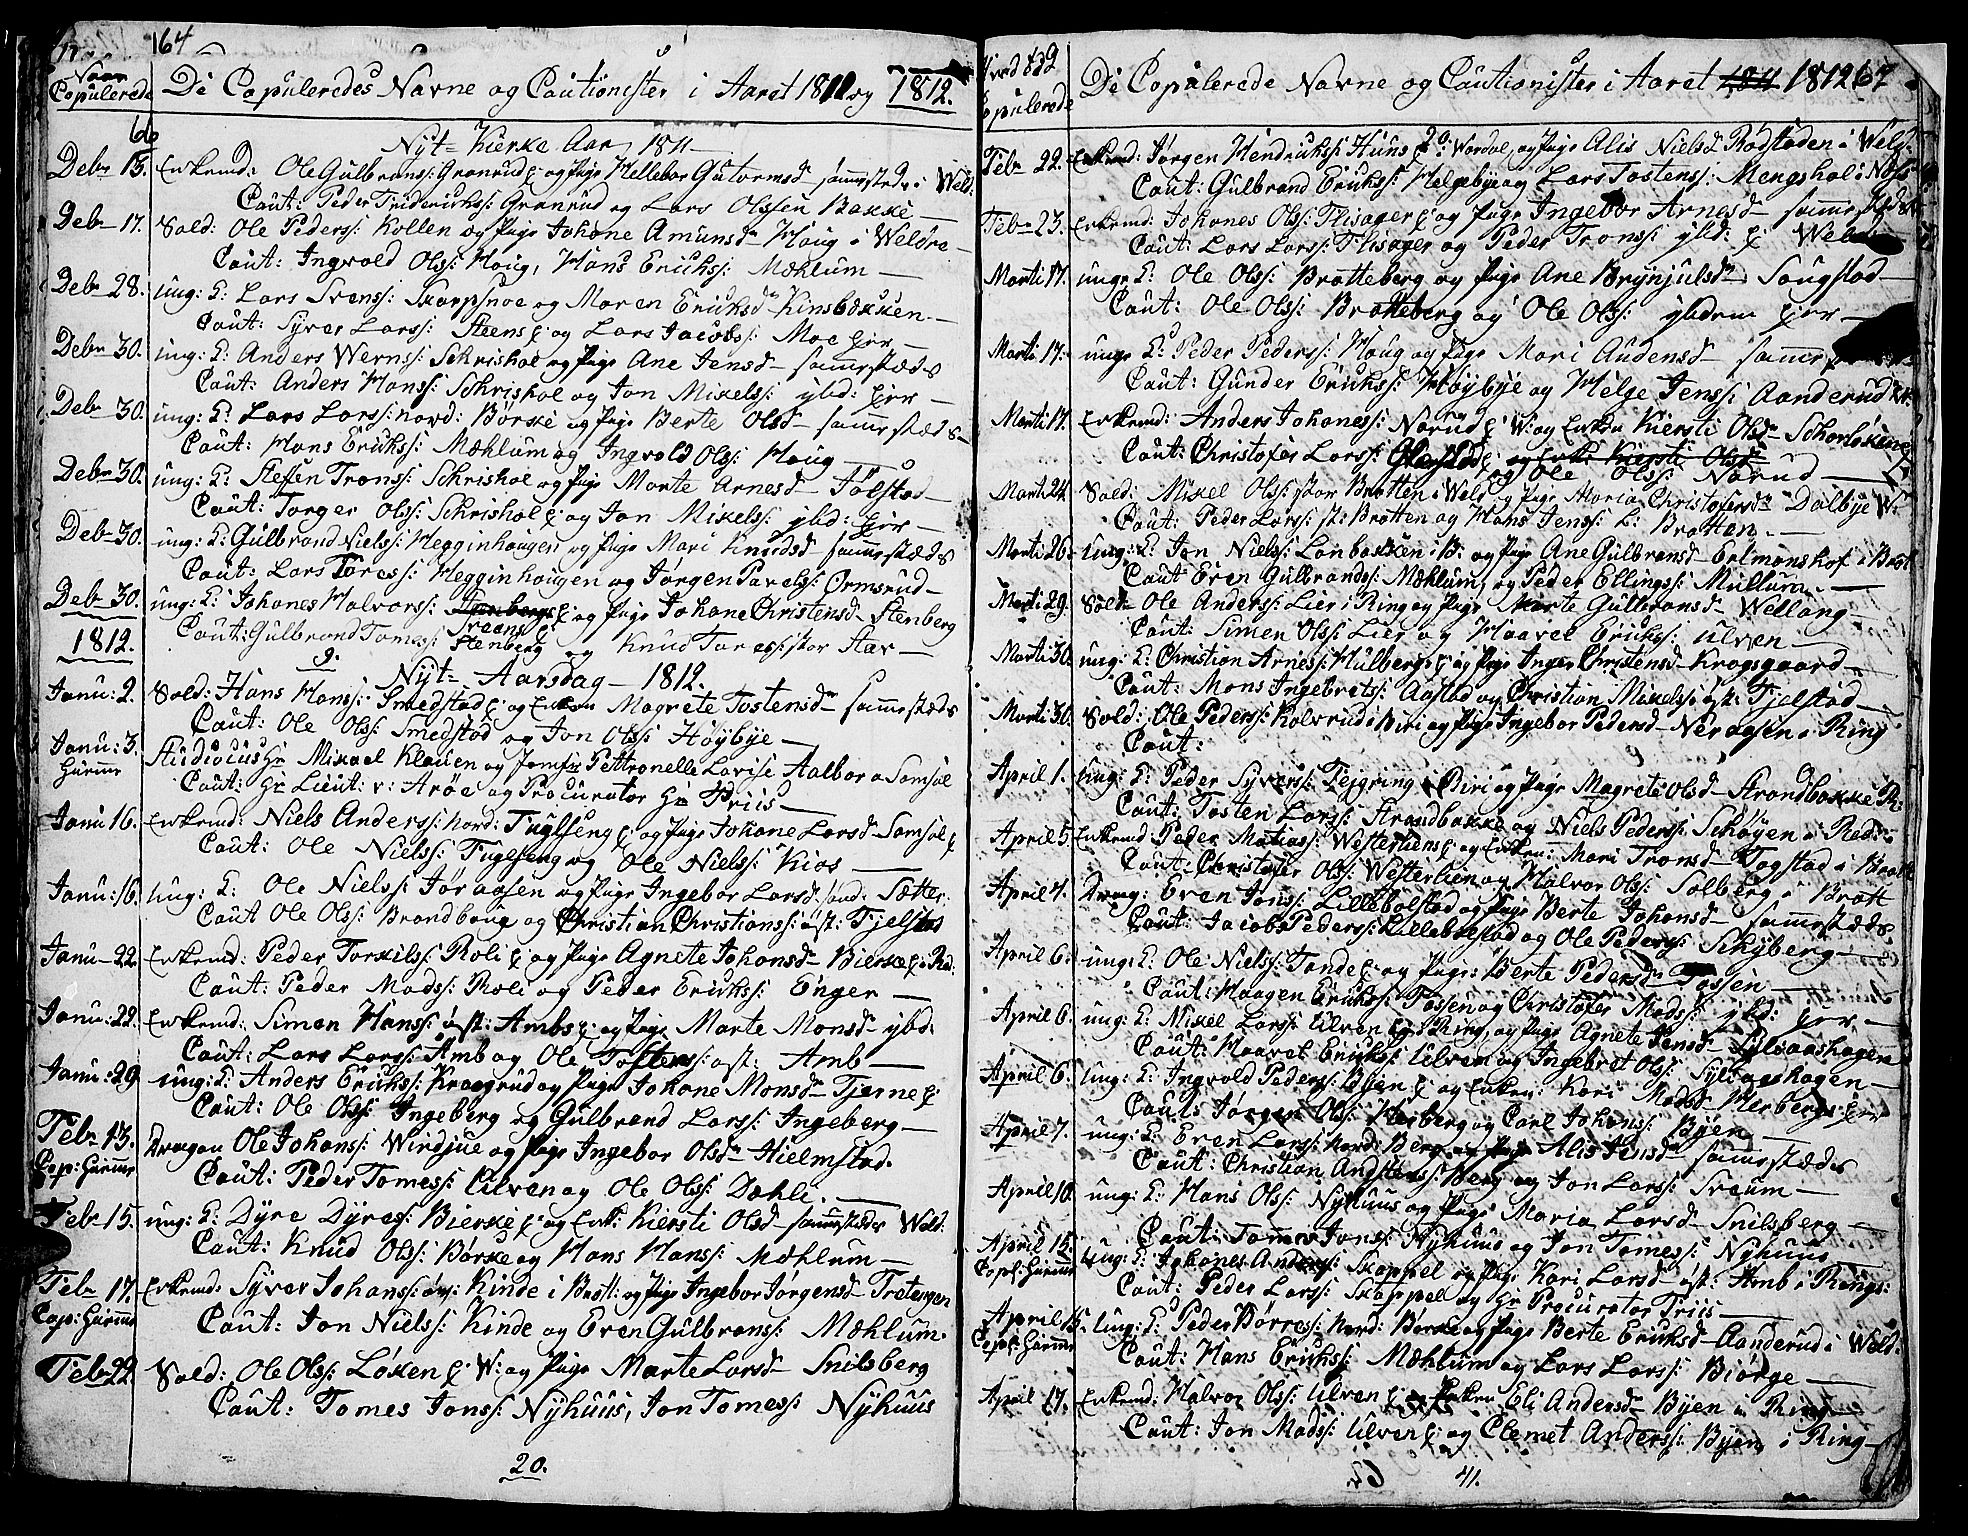 164
Naar Copulerede
De Copuleredes Navne og Cautionister i Aaret 1811 og 1812.
66
Nyt-Kierke Aar 1811
Debr 13. Enkemd: Ole Gulbranss: Granrud og Pige Hellebor Gutormsd sammestæds i Weld:
Caut: Peder Friderichss: Granrud og Lars Olssen Bakke
Debr 17. Sold: Ole Pederss: Kollen og Pige Johane Amunsd Houg i Weldre
Caut: Ingvold Olss: Houg, Hans Erichss: Mæhlum
Debr 28. ung: C: Lars Svenss: Skappsnoe og Maren Eriksd Kinsbækken
Caut: Syver Larss: Steens og Lars Jacobs: Moe
Debr 30. ung: C: Anders Wernss: Schrishol og Pige Ane Jensd sammestæds
Caut: Anders Hanss: Schrishol og Jon Mikelss: ybd:
Debr 30. ung: C: Lars Larss: nord: Børke og Pige Berte Olsd sammestæds
Caut: Hans Erikss: Mæhlum og Ingvold Olss: Houg
Debr 30. ung: C: Steffen Tronss: Schrishol og Pige Marte Arnesd Tolstad
Caut: Torger Olss: Schrishol og Jon Mikelss: ybd:
Debr 30. ung: C: Gulbrand Nielss: Hegginhougen og Pige Mari Knudsd sammestæds
Caut: Lars Toress: Hegginhaugen og Jørgen Pavelss: Ormsrud
Debr 30. ung: C: Johanes Halvorss: og Pige Johane Christensd Stenberg
Caut: Gulbrand Tomess: Stenberg og Knud Toress: stor Aar
1812.
9.
Nyt-Aarsdag 1812.
Janu: 2. Sold: Hans Hanss: Smedstad og Enken Magrete Tostensd sammestæds
Caut: Ole Olss: Smedstad og Jon Olss: Høybye
Janu: 3. Studiosus Hr Mikael Klauen og Jomfr Pettronelle Lovise Aalbor a Somsol
Caut: Hr Lieut: v: Arøe og Procurator Hr Friis
Janu 16. Enkemd: Niels Anderss: nord: Fuglseng og Pige Johane Larsd Somsol
Caut: Ole Nielss: Fuglseng og Ole Nielss: Kios
Janu: 16. ung: C: Ole Nielss: Joraasen og Pige Ingebor Larsd sønd: Sætter
Caut Ole Olss: Brandboug og Christian Christianss: øst: Fjelstad
Janu 22. Enkemd: Peder Torkilss: Roli og Pige Agnete Johansd Bierke i Red:
Caut: Peder Madss: Roli og Peder Erikss: Enger
Janu: 22. Enkemd: Simen Hanss: øst: Ambs og Pige Marte Monsd ybd:
Caut: Lars Larss: Amb og Ole Tostenss: øst: Amb
Janu: 29. ung: C: Anders Erikss: Kroegrud og Pige Johane Monsd Tjerne
Caut: Ole Olss: Ingeberg og Gulbrand Larss: Ingeberg
Febr 13. Dragon Ole Johanss: Windjue og Pige Ingebor Olsd Hielmstad.
Caut: Peder Tomess: Ulven og Ole Olss: Dæhli.
Febr 15. ung: C: Dyre Dyress: Bierke og Enk: Kiersti Olsd sammestæds Weld:
Caut: Knud Olss: Børke og Hans Hanss: Mæhlum
Febr 17. Enkemd: Syver Johanss: Kinde i Brøt: og Pige Ingebor Jørgensd Tretergen
Caut: Jon Nielss: Kinde og Even Gulbranss: Mæhlum.
Febr 22. Sold: Ole Olss: Løken W: og Pige Marte Larsd Snilsberg
Caut: Tomes Jonss: Nyhuus, Jon Tomess: Nyhuus
20.
De Copulerede Navne og Cautionister i Aaret 1811 1812 67
Febr 22. Enkemd: Jørgen Hendrikss: Huns Wardal, og Pige Alis Nielsd Rodstaden i Weld
Caut: Gulbrand Erikss: Helgebye og Lars Tostenss: Mengshol i Næs
Febr 23. Enkemd: Johanes Olss: Flisager og Pige Ingebor Arnesd sammestæds
Caut: Lars Larss: Flisager og Peder Tronss: ybd:
Marti 17. ung: C: Ole Olss: Bratteberg og Pige Ane Brynjulsd Sougstad
Caut: Ole Olss: Bratteberg og Ole Olss: ybdem
Marti 17. ung: C: Peder Pederss: Houg og Pige Mari Audensd
Caut: Gunder Erikss: Høybye og Helge Jenss: Aanderud
Marti 17. Enkemd: Anders Johaness: Narud W: og Enken Kiersti Olsd Schonløkene
Caut: Christofer Larss: og Ole Olss: Narud
Marti 24. Sold: Mikel Olss: stor Bratten i Weld og Pige Maria Christofersd Dalbye W:
Caut: Peder Larss: st: Bratten og Hans Jenss: L: Bratten.
Marti 26. Ung: C: Jon Nielss: Lonbakken i B: og Pige Ane Gulbransd Colmonshof i Brøt
Caut Even Gulbrandss: Mæhlum, og Peder Ellingss: Mullum.
Marti 29. Sold: Ole Anderss: Lier i Ring og Pige Marte Gulbransd Wellang
Caut: Simen Olss: Lier og Haavel Erikss: Ulven
Marti 30. ung: C: Christian Arness: Hulberg og Pige Inger Christensd Krogsgaard
Caut: Mons Ingebretss: Aastad og Christian Mikelss: øst: Fjelstad
Marti 30. Sold: Ole Pederss: Kolsrud i Biri og Pige Ingebor Pedersd Neraasen i Ring
Caut:
April 1. ung: C: Peder Syverss: Fejgring i Biri og Pige Magrete Olsd Strandbakke
Caut: Tosten Larss: Strandbakke og Niels Pederss: Schøyen i Red:
April 5. Enkemd: Peder Matiass: Westertiens og Enken: Mari Tronsd Fogstad i Brøt
Caut: Christofer Olss: Westerlien og Halvor Olss: Solberg i Brøtt
April 4. Drag: Even Jonss: Lillebolstad og Pige Berte Johansd sammestæds
Caut: Jacob Pederss: Lillebolstad og Ole Pederss: Schyberg
April 6. ung: C: Ole Nielss: Tande og Pige: Berte Pedersd Fossen
Caut: Haagen Erikss: Fossen og Christofer Madss: ybd:
April 6. ung: C: Mikel Larss: Ulven i Ring, og Pige Agnete Jensd Sylvaashagen
Caut: Haavel Erikss: Ulven og Ingebret Olss: Sylvaashagen
April 6. ung: C: Ingvold Pederss: Byen og Enken: Kari Madsd Herberg
Caut: Jørgen Olss: Herberg og Carl Johanss: Byen
April 7. ung: C: Even Larss: nord: Berg og Pige Alis Jensd sammestæds
Caut: Christian Andrss: Berg og Jon Larss: Sveum
April 10. ung: C: Hans Olss: Nyhuus og Pige Maria Larsd Snilsberg
Caut: Tomes Jonss: Nyhuus og Jon Tomess: Nyhuus
April 15. Ung: C: Johanes Anderss: Skappel og Pige Kari Larsd øst: Amb i Rings:
Caut: Peder Larss: Skappel og Hr Procurator Friis
April 15. Ung: C: Peder Børress: nord: Børke og Pige Berte Eriksd Aanderud i Weld:
Caut: Hans Erikss: Mæhlum og Lars Larss: Biørge
April 17. Enkemd: Halvor Olss: Ulven og Enken Eli Andersd Byen i Ring
Caut: Jon Madss: Ulven og Clemet Anderss: Byen i Ring
41.